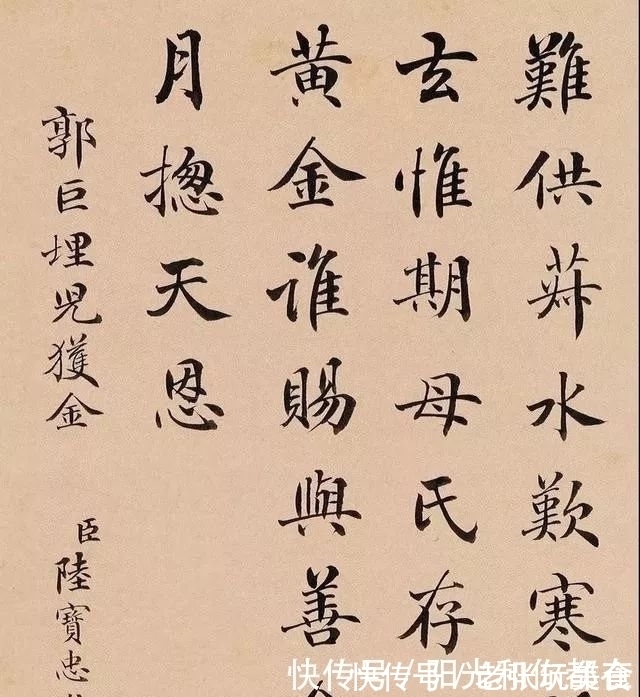 難供菽水歎寒
去惟期母氏存
黄金誰賜與善
月摠天恩
郭巨埋兒獲金
臣陸寶忠
快传号/阳光和你都在